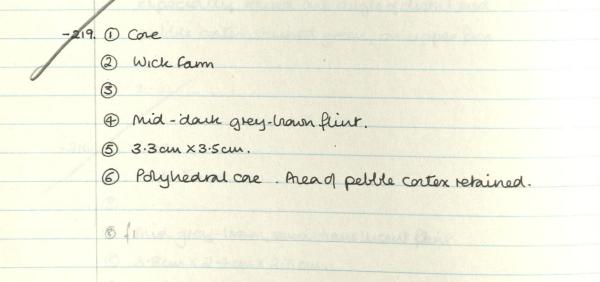 -219. ① Core
② Wick Farm
③
④ Mid-dark grey-brown flint.
⑤ 3.3cm x 3.5cm.
⑥ Polyhedral core. Area of pebble cortex retained.